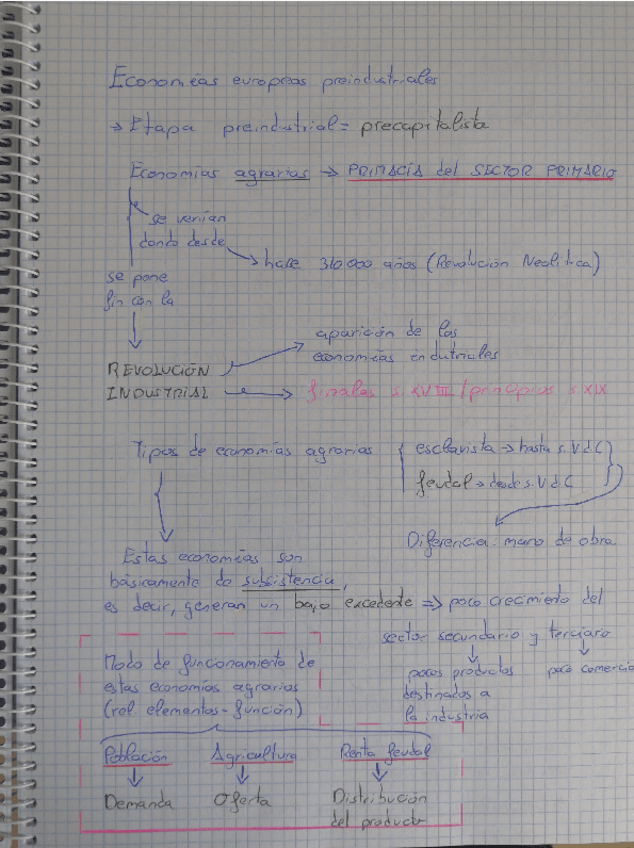 Economías europeas preindustriales
→ Etapa preindustrial = precapitalista
Economías agrarias → PRIMACÍA del SECTOR PRIMARIO
se venían
dando desde
hace 310000 años (Revolución Neolítica)
se pone
fin con la
REVOLUCIÓN
INDUSTRIAL
aparición de las
economías industriales
finales s XVIII / principios s XIX
Tipos de economías agrarias
esclavista → hasta s. V d.C
feudal → desde s. V d.C
Diferencia: mano de obra
Estas economías son
básicamente de subsistencia,
es decir, generan un bajo excedente ⇒ poco crecimiento del
sector secundario y terciario
pocos productos
destinados a
la industria
poco comercio
Modo de funcionamiento de
estas economías agrarias
(rel. elementos - función)
Población Agricultura Renta feudal
Demanda Oferta Distribución
del producto